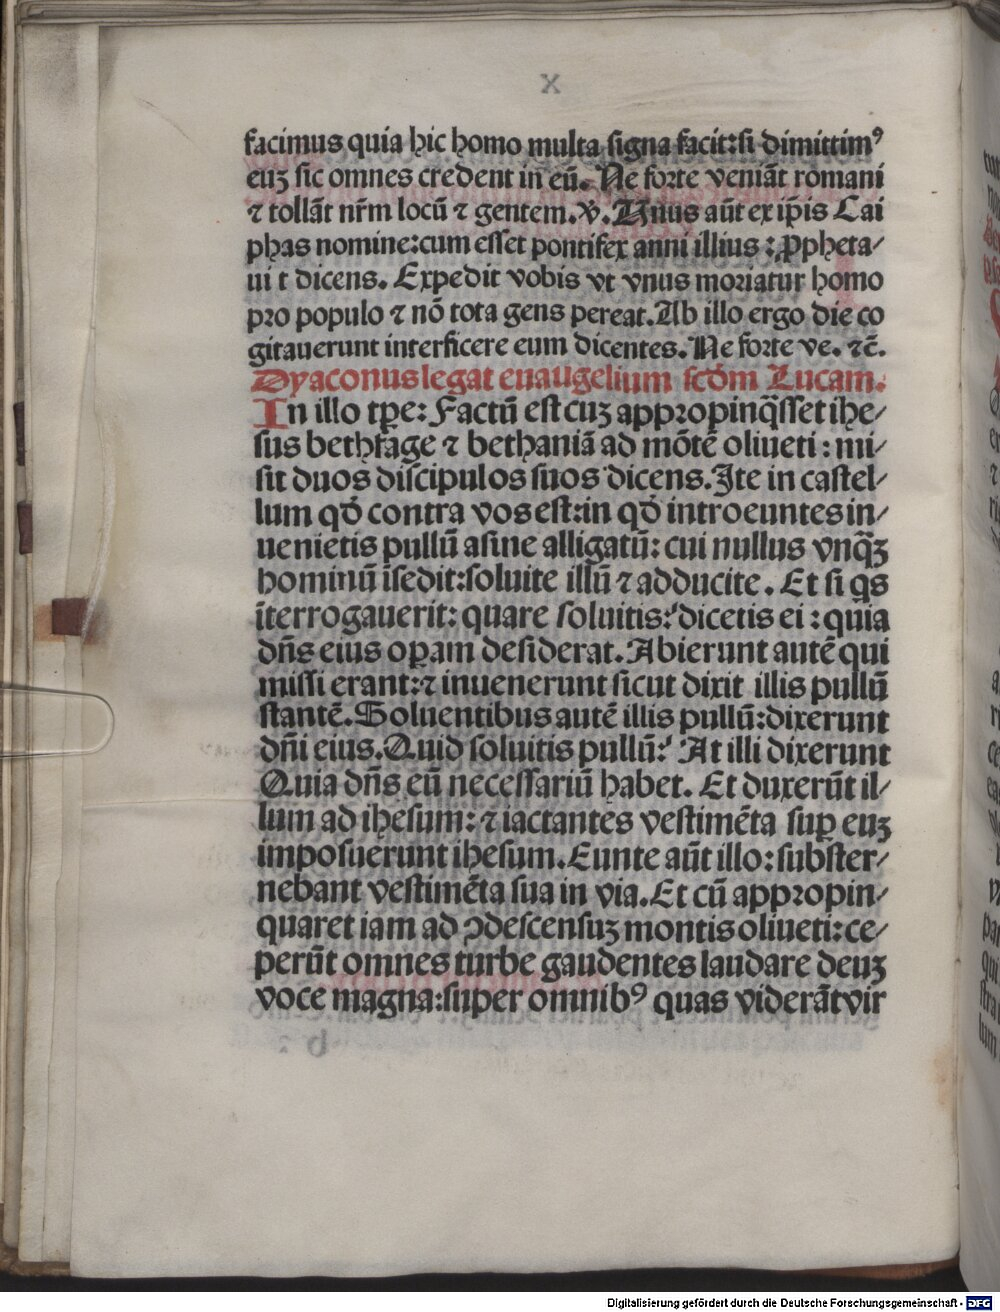 x
facimus quia hic homo multa signa facit:si dimittimꝰ
euꝫ sic omnes credent in eū. Ne forte veniāt romani
⁊ tollāt nr̄m locū ⁊ gentem.ꝟ. Unus aūt ex ip̄is Cai
phas nomine:cum esset pontifex anni illius : ꝓpheta/
ui t dicens. Expedit vobis vt vnus moriatur homo
pro populo ⁊ nō tota gens pereat. Ab illo ergo die co
gitauerunt interficere eum dicentes. Ne forte ve. ⁊c̄.
Dyaconus legat euaugelium scd̄m Lucam.
In illo tp̄e: Factū est cuꝫ appropinq̄sset ihe/
sus bethfage ⁊ bethaniā ad mōtē oliueti : mi/
sit duos discipulos suos dicens. Ite in castel/
lum qd̄ contra vos est:in qd̄ introeuntes in/
uenietis pullū asine alligatū: cui nullus vnq̄ꝫ
hominū īsedit:soluite illū ⁊ adducite. Et si q̄s
īterrogauerit: quare soluitis: dicetis ei : quia
dn̄s eius oꝑam desiderat. Abierunt autē qui
missi erant:⁊ inuenerunt sicut dixit illis pullū
stantē. Soluentibus autē illis pullū:dixerunt
dn̄i eius. Quid soluitis pullū: At illi dixerunt
Quia dn̄s eū necessariū habet. Et duxerūt il/
lum ad ihesum: ⁊ iactantes vestimēta suꝑ euꝫ
imposuerunt ihesum. Eunte aūt illo: subster/
nebant vestimēta sua in via. Et cū appropin/
quaret iam ad ꝯdescensuꝫ montis oliueti: ce/
perūt omnes turbe gaudentes laudare deuꝫ
voce magna:super omnibꝰ quas viderāt vir
Digitalisierung gefördert durch die Deutsche Forschungsgemeinschaft - DFG